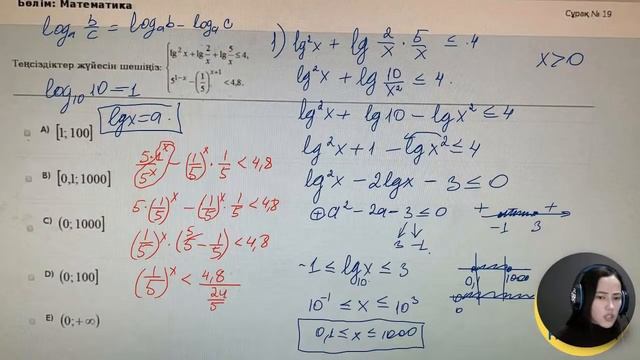 Бөлім: Математика
Сұрақ № 19
log_a b/c = log_a b - log_a c
Теңсіздіктер жүйесін шешіңіз: { lg²x + lg 2/x + lg 5/x ≤ 4,
5^(1-x) - (1/5)^(x+1) < 4,8.
log₁₀ 10 = 1
lgx = a
A) [1; 100]
B) [0,1; 1000]
C) (0; 1000]
D) (0; 100]
E) (0; +∞)
5·1^x/5^x - (1/5)^x · 1/5 < 4,8
5·(1/5)^x - (1/5)^x · 1/5 < 4,8
(1/5)^x · (5/5 - 1/5) < 4,8
(1/5)^x < 4,8 / (24/5)
1) lg²x + lg 2/x · 5/x ≤ 4
x > 0
lg²x + lg 10/x² ≤ 4.
lg²x + lg10 - lgx² ≤ 4
lg²x + 1 - lgx² ≤ 4
lg²x - 2lgx - 3 ≤ 0
a² - 2a - 3 ≤ 0
3 -1
+ - +
-1 3
-1 ≤ lg x ≤ 3
10
10⁻¹ ≤ x ≤ 10³
0,1 ≤ x ≤ 1000
0,1 1000
0